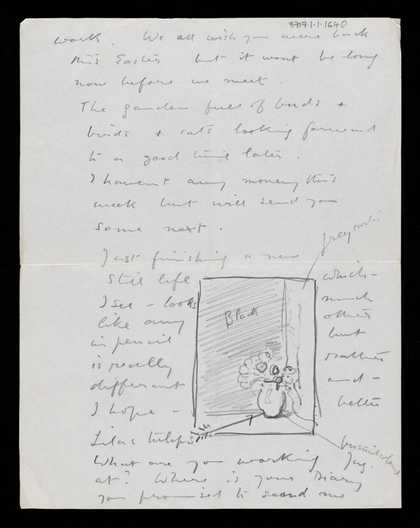 8717.1.1.1640
work. We all wish you were back
this Easter but it wont be long
now before we meet.
The garden full of buds &
birds & cats looking forward
to a good time later.
I havent any money this
week but will send you
some next.
Just finishing a new
Still life which -
I see - looks much
like any other
in pencil but
is really rather
different and -
I hope - better
Grey
Black
Lilac tulips
jug.
What are you working
at? Where is your Diary
you promised to send me